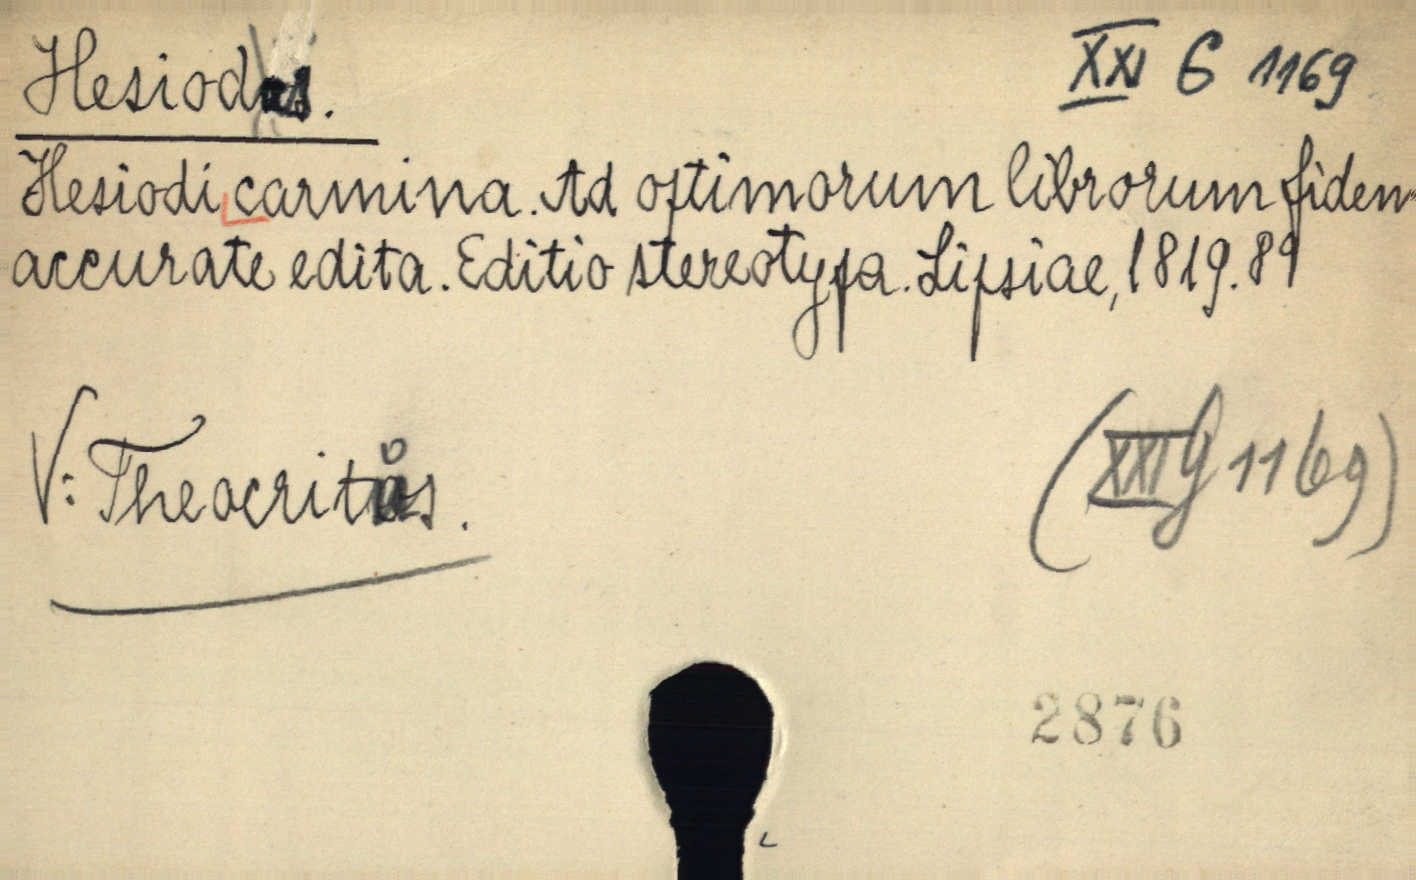 Hesiodos.
XXI G 1169
Hesiodi carmina. Ad optimorum librorum fidem
accurate edita. Editio stereotypa. Lipsiae, 1819. 89
V: Theocritos.
(XXI G 1169)
2876